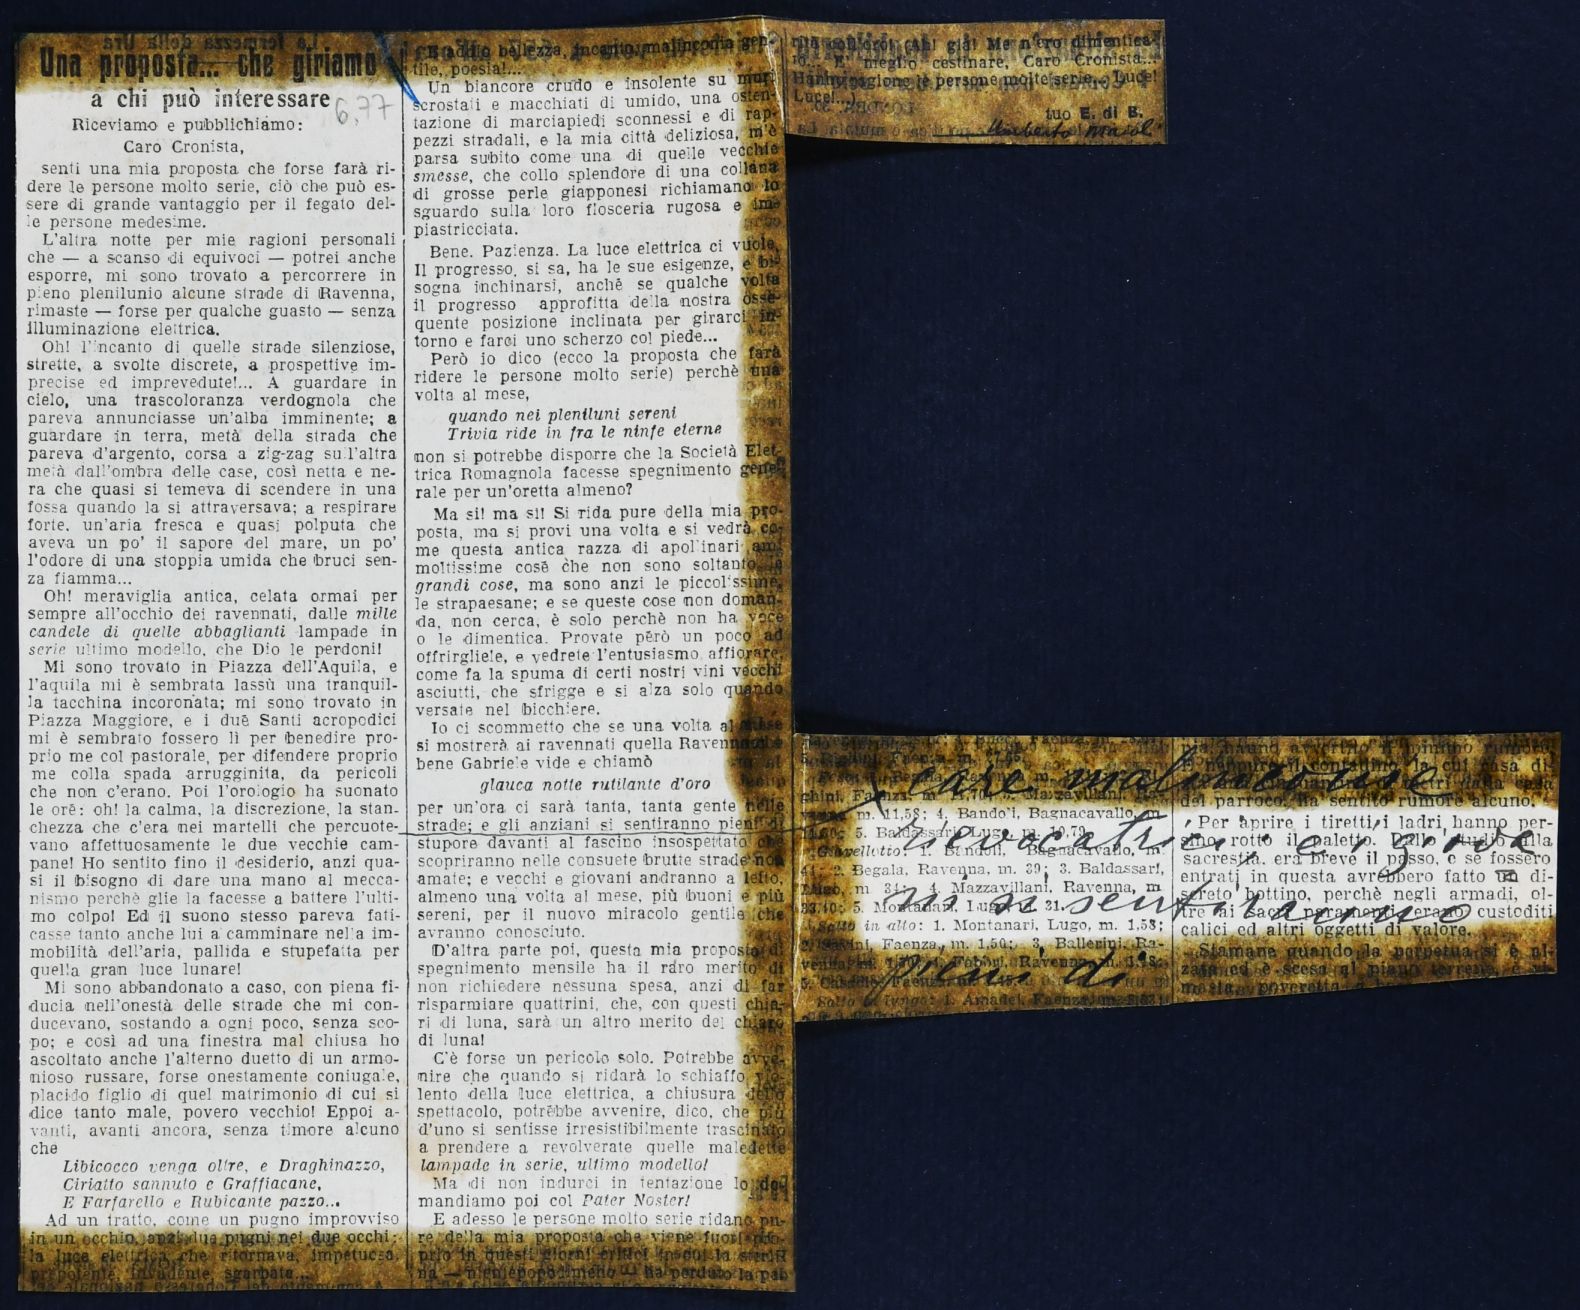 Una proposta... che giriamo
a chi può interessare
6,77
Riceviamo e pubblichiamo:
Caro Cronista,
senti una mia proposta che forse farà ri-
dere le persone molto serie, ciò che può es-
sere di grande vantaggio per il fegato del-
le persone medesime.
L'altra notte per mie ragioni personali
che — a scanso di equivoci — potrei anche
esporre, mi sono trovato a percorrere in
pieno plenilunio alcune strade di Ravenna,
rimaste — forse per qualche guasto — senza
illuminazione elettrica.
Oh! l'incanto di quelle strade silenziose,
strette, a svolte discrete, a prospettive im-
precise ed imprevedute!... A guardare in
cielo, una trascoloranza verdognola che
pareva annunciasse un'alba imminente; a
guardare in terra, metà della strada che
pareva d'argento, corsa a zig-zag sull'altra
metà dall'ombra delle case, così netta e ne-
ra che quasi si temeva di scendere in una
fossa quando la si attraversava; a respirare
forte, un'aria fresca e quasi polputa che
aveva un po' il sapore del mare, un po'
l'odore di una stoppia umida che bruci sen-
za fiamma...
Oh! meraviglia antica, celata ormai per
sempre all'occhio dei ravennati, dalle mille
candele di quelle abbaglianti lampade in
serie ultimo modello, che Dio le perdoni!
Mi sono trovato in Piazza dell'Aquila, e
l'aquila mi è sembrata lassù una tranquil-
la tacchina incoronata; mi sono trovato in
Piazza Maggiore, e i due Santi acropodici
mi è sembrato fossero lì per benedire pro-
prio me col pastorale, per difendere proprio
me colla spada arrugginita, da pericoli
che non c'erano. Poi l'orologio ha suonato
le ore: oh! la calma, la discrezione, la stan-
chezza che c'era nei martelli che percuote-
vano affettuosamente le due vecchie cam-
pane! Ho sentito fino il desiderio, anzi qua-
si il bisogno di dare una mano al mecca-
nismo perchè glie la facesse a battere l'ulti-
mo colpo! Ed il suono stesso pareva fati-
casse tanto anche lui a camminare nella im-
mobilità dell'aria, pallida e stupefatta per
quella gran luce lunare!
Mi sono abbandonato a caso, con piena fi-
ducia nell'onestà delle strade che mi con-
ducevano, sostando a ogni poco, senza sco-
po; e così ad una finestra mal chiusa ho
ascoltato anche l'alterno duetto di un armo-
nioso russare, forse onestamente coniugale,
placido figlio di quel matrimonio di cui si
dice tanto male, povero vecchio! Eppoi a-
vanti, avanti ancora, senza timore alcuno
che
Libicocco venga oltre, e Draghinazzo,
Ciriatto sannuto e Graffiacane,
E Farfarello e Rubicante pazzo...
Ad un tratto, come un pugno improvviso
in un occhio, anzi due pugni nei due occhi:
la luce elettrica che ritornava, impetuosa,
prepotente, invadente, sgarbata...
E addio bellezza, incanto, malinconia gen-
tile, poesia!...
Un biancore crudo e insolente su muri
scrostati e macchiati di umido, una osten-
tazione di marciapiedi sconnessi e di rap-
pezzi stradali, e la mia città deliziosa, m'è
parsa subito come una di quelle vecchie
smesse, che collo splendore di una collana
di grosse perle giapponesi richiamano lo
sguardo sulla loro flosceria rugosa e im-
piastricciata.
Bene. Pazienza. La luce elettrica ci vuole,
Il progresso, si sa, ha le sue esigenze, e bi-
sogna inchinarsi, anchè se qualche volta
il progresso approfitta della nostra osse-
quente posizione inclinata per girarci in-
torno e farci uno scherzo col piede...
Però io dico (ecco la proposta che farà
ridere le persone molto serie) perchè una
volta al mese,
quando nei pleniluni sereni
Trivia ride in fra le ninfe eterne
non si potrebbe disporre che la Società Elet-
trica Romagnola facesse spegnimento gene-
rale per un'oretta almeno?
Ma sì! ma sì! Si rida pure della mia pro-
posta, ma si provi una volta e si vedrà co-
me questa antica razza di apollinari ami
moltissime cose che non sono soltanto le
grandi cose, ma sono anzi le piccolissime,
le strapaesane; e se queste cose non doman-
da, non cerca, è solo perchè non ha voce
o le dimentica. Provate però un poco ad
offrirgliele, e vedrete l'entusiasmo affiorare,
come fa la spuma di certi nostri vini vecchi
asciutti, che sfrigge e si alza solo quando
versate nel bicchiere.
Io ci scommetto che se una volta al mese
si mostrerà ai ravennati quella Ravenna che
bene Gabriele vide e chiamò
glauca notte rutilante d'oro
per un'ora ci sarà tanta, tanta gente nelle
strade; e gli anziani si sentiranno pieni di
stupore davanti al fascino insospettato che
scopriranno nelle consuete brutte strade non
amate; e vecchi e giovani andranno a letto,
almeno una volta al mese, più buoni e più
sereni, per il nuovo miracolo gentile che
avranno conosciuto.
D'altra parte poi, questa mia proposta di
spegnimento mensile ha il raro merito di
non richiedere nessuna spesa, anzi di far
risparmiare quattrini, che, con questi chia-
ri di luna, sarà un altro merito del chiaro
di luna!
C'è forse un pericolo solo. Potrebbe avve-
nire che quando si ridarà lo schiaffo vio-
lento della luce elettrica, a chiusura dello
spettacolo, potrebbe avvenire, dico, che più
d'uno si sentisse irresistibilmente trascinato
a prendere a revolverate quelle maledette
lampade in serie, ultimo modello!
Ma di non indurci in tentazione lo do-
mandiamo poi col Pater Noster!
E adesso le persone molto serie ridano pu-
re della mia proposta che viene fuori pro-
prio in questi giorni critici in cui la sterli-
na — nientepopodimeno — ha perduto la pa-
rità coll'oro! (Ah! già! Me n'ero dimentica-
to.. E' meglio cestinare, Caro Cronista...
Hanno ragione le persone molto serie... Luce!
Luce!...
tuo E. di B.
Umberto
care malinconie
rievocatrici e i giova
ni si sentiranno
pieni di
m. 11,58; 4. Bandoli, Bagnacavallo, m.
5. Baldassari, Lugo, m. 10,79.
Giavellotto: 1. Bandoli, Bagnacavallo, m.
2. Begala, Ravenna, m. 39; 3. Baldassari,
Lugo, m 34; 4. Mazzavillani, Ravenna, m
33,40; 5. Montanari, Lugo, m. 31.
Salto in alto: 1. Montanari, Lugo, m. 1,58;
Faenza, m. 1,50; 3. Ballerini, Ra-
4. Fabbri, Ravenna, m.
Salto in lungo: 1. Amadei, Faenza, m.
del parroco, ha sentito rumore alcuno.
Per aprire i tiretti i ladri hanno per-
sino rotto il paletto. Dallo studio alla
sacrestia, era breve il passo, e se fossero
entrati in questa avrebbero fatto un di-
screto bottino, perchè negli armadi, ol-
tre ai sacri paramenti erano custoditi
calici ed altri oggetti di valore.
Stamane quando la perpetua si è al-
zata ed è scesa al piano terreno, è